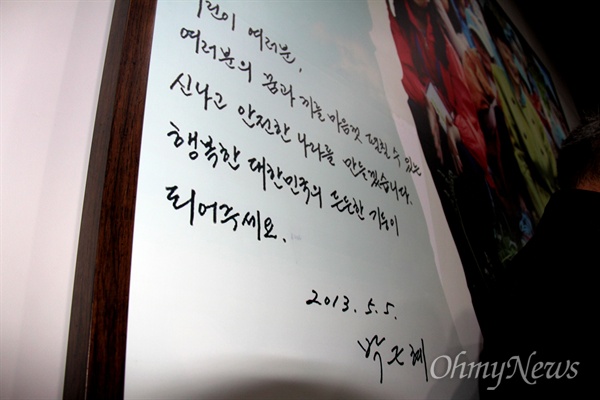 어린이 여러분,
여러분의 꿈과 끼를 마음껏 펼칠 수 있는
신나고 안전한 나라를 만들겠습니다.
행복한 대한민국의 든든한 기둥이
되어주세요.
2013. 5. 5.
박근혜
OhmyNews